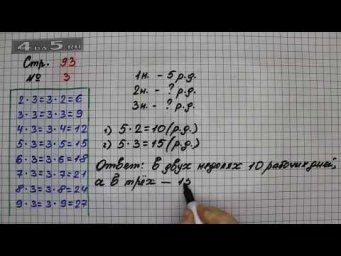 4 на 5.ru
Стр. 93
№ 3
2·3=3·2=6
3·3=3·3=9
4·3=3·4=12
5·3=3·5=15
6·3=3·6=18
7·3=3·7=21
8·3=3·8=24
9·3=3·9=27
1н. - 5 р.д.
2н. - ? р.д.
3н. - ? р.д.
1) 5·2=10(р.д.)
2) 5·3=15(р.д.)
Ответ: в двух неделях 10 рабочих дней,
а в трёх – 15